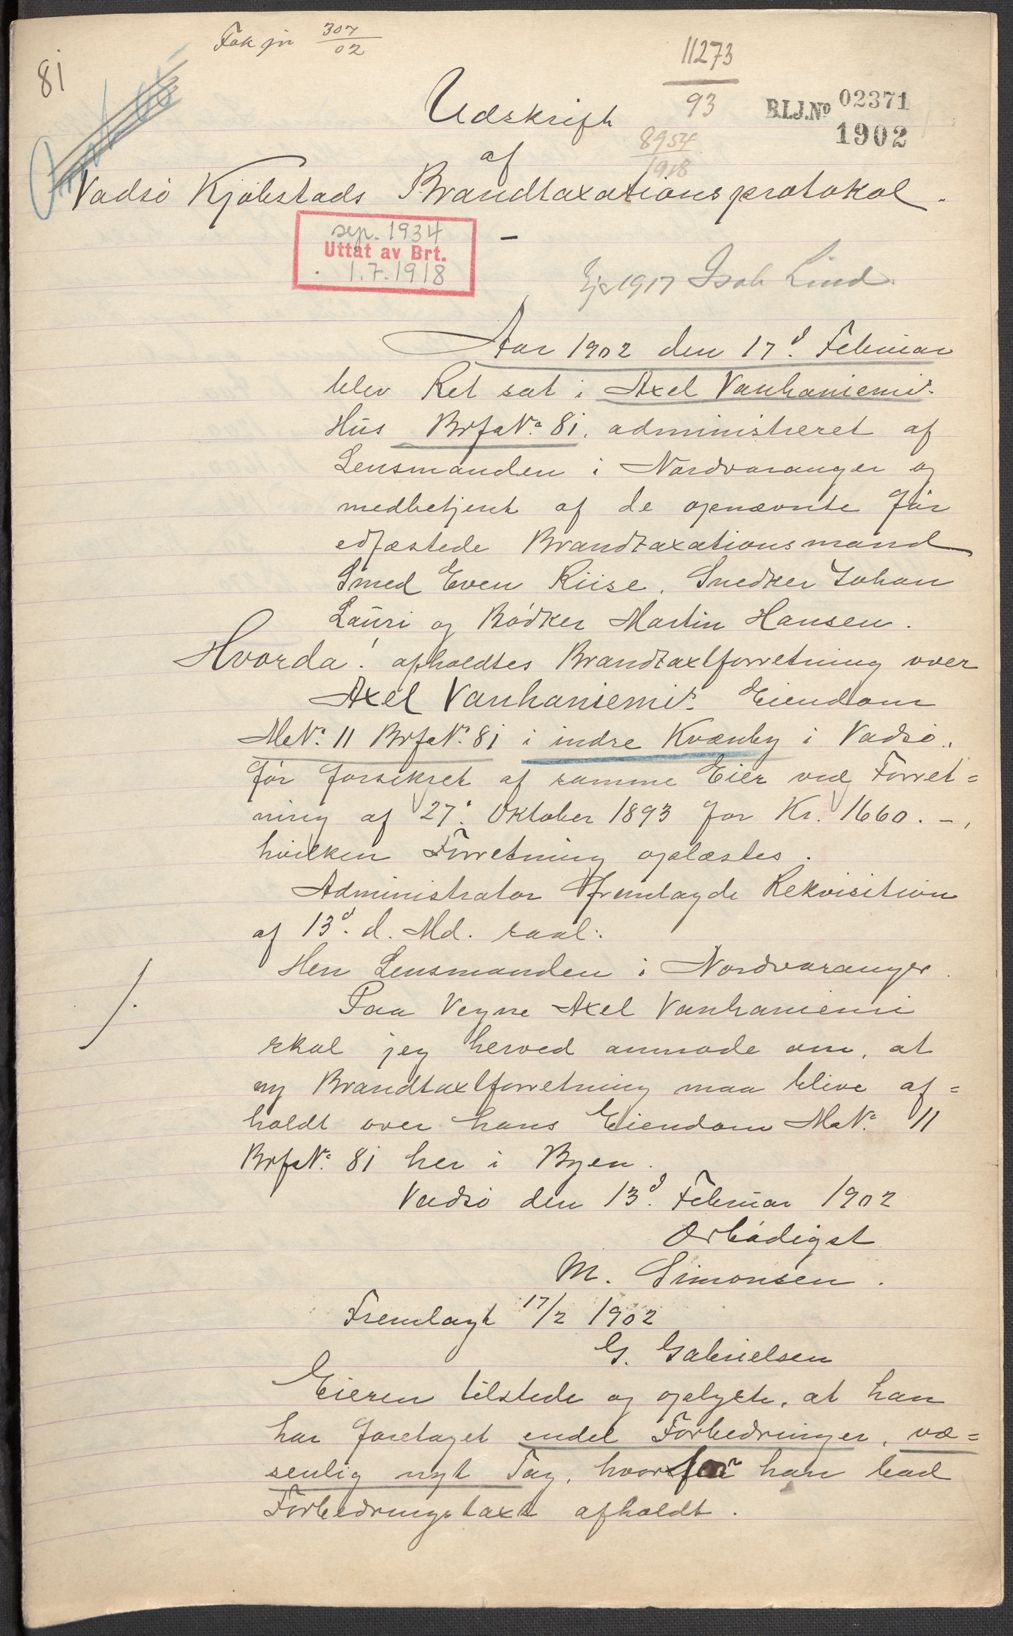 81
Fak jn 307/02
11273/93
B.I.J.Nº 02371
1902
Udskrift
8954/1918
af
Vadsö Kjöbstads Brandtaxationsprotokol.
sep. 1934
Uttat av Brt.
1.7.1918
1917 Isak Lind
Aar 1902 den 17d. Februar
blev Ret sat i Axel Vanhaniemis
Hus BrfaNº 81, administreret af
Lensmanden i Nordvaranger og
medbetjent af de opnævnte før
edfæstede Brandtaxationsmænd
Smed Even Riise, Snedker Johan
Lauri og Bödker Martin Hansen.
Hvorda! afholdtes Brandtaxtforretning over
Axel Vanhaniemis Eiendom
MaNº 11 BrfaNº 81 i indre Kvænby i Vadsö,
før forsikret af samme Eier ved Forret=
ning af 27º Oktober 1893 for Kr. 1660.–,
hvilken Forretning oplæstes.
Administrator fremlagde Rekvisition
af 13d. d. Md. saal.
Herr Lensmanden i Nordvaranger.
Paa Vegne Axel Vanhaniemi
skal jeg herved anmode om, at
ny Brandtaxtforretning maa blive af=
holdt over hans Eiendom MaNº 11
BrfaNº 81 her i Byen.
Vadsö den 13d. Februar 1902
Ærbödigst
M. Simonsen.
Fremlagt 17/2 1902
G. Gabrielsen
Eieren tilstede og oplyste, at han
har foretaget endel Forbedringer, væ=
senlig nyt Tag, hvorfor han bad
Forbedringstaxt afholdt.